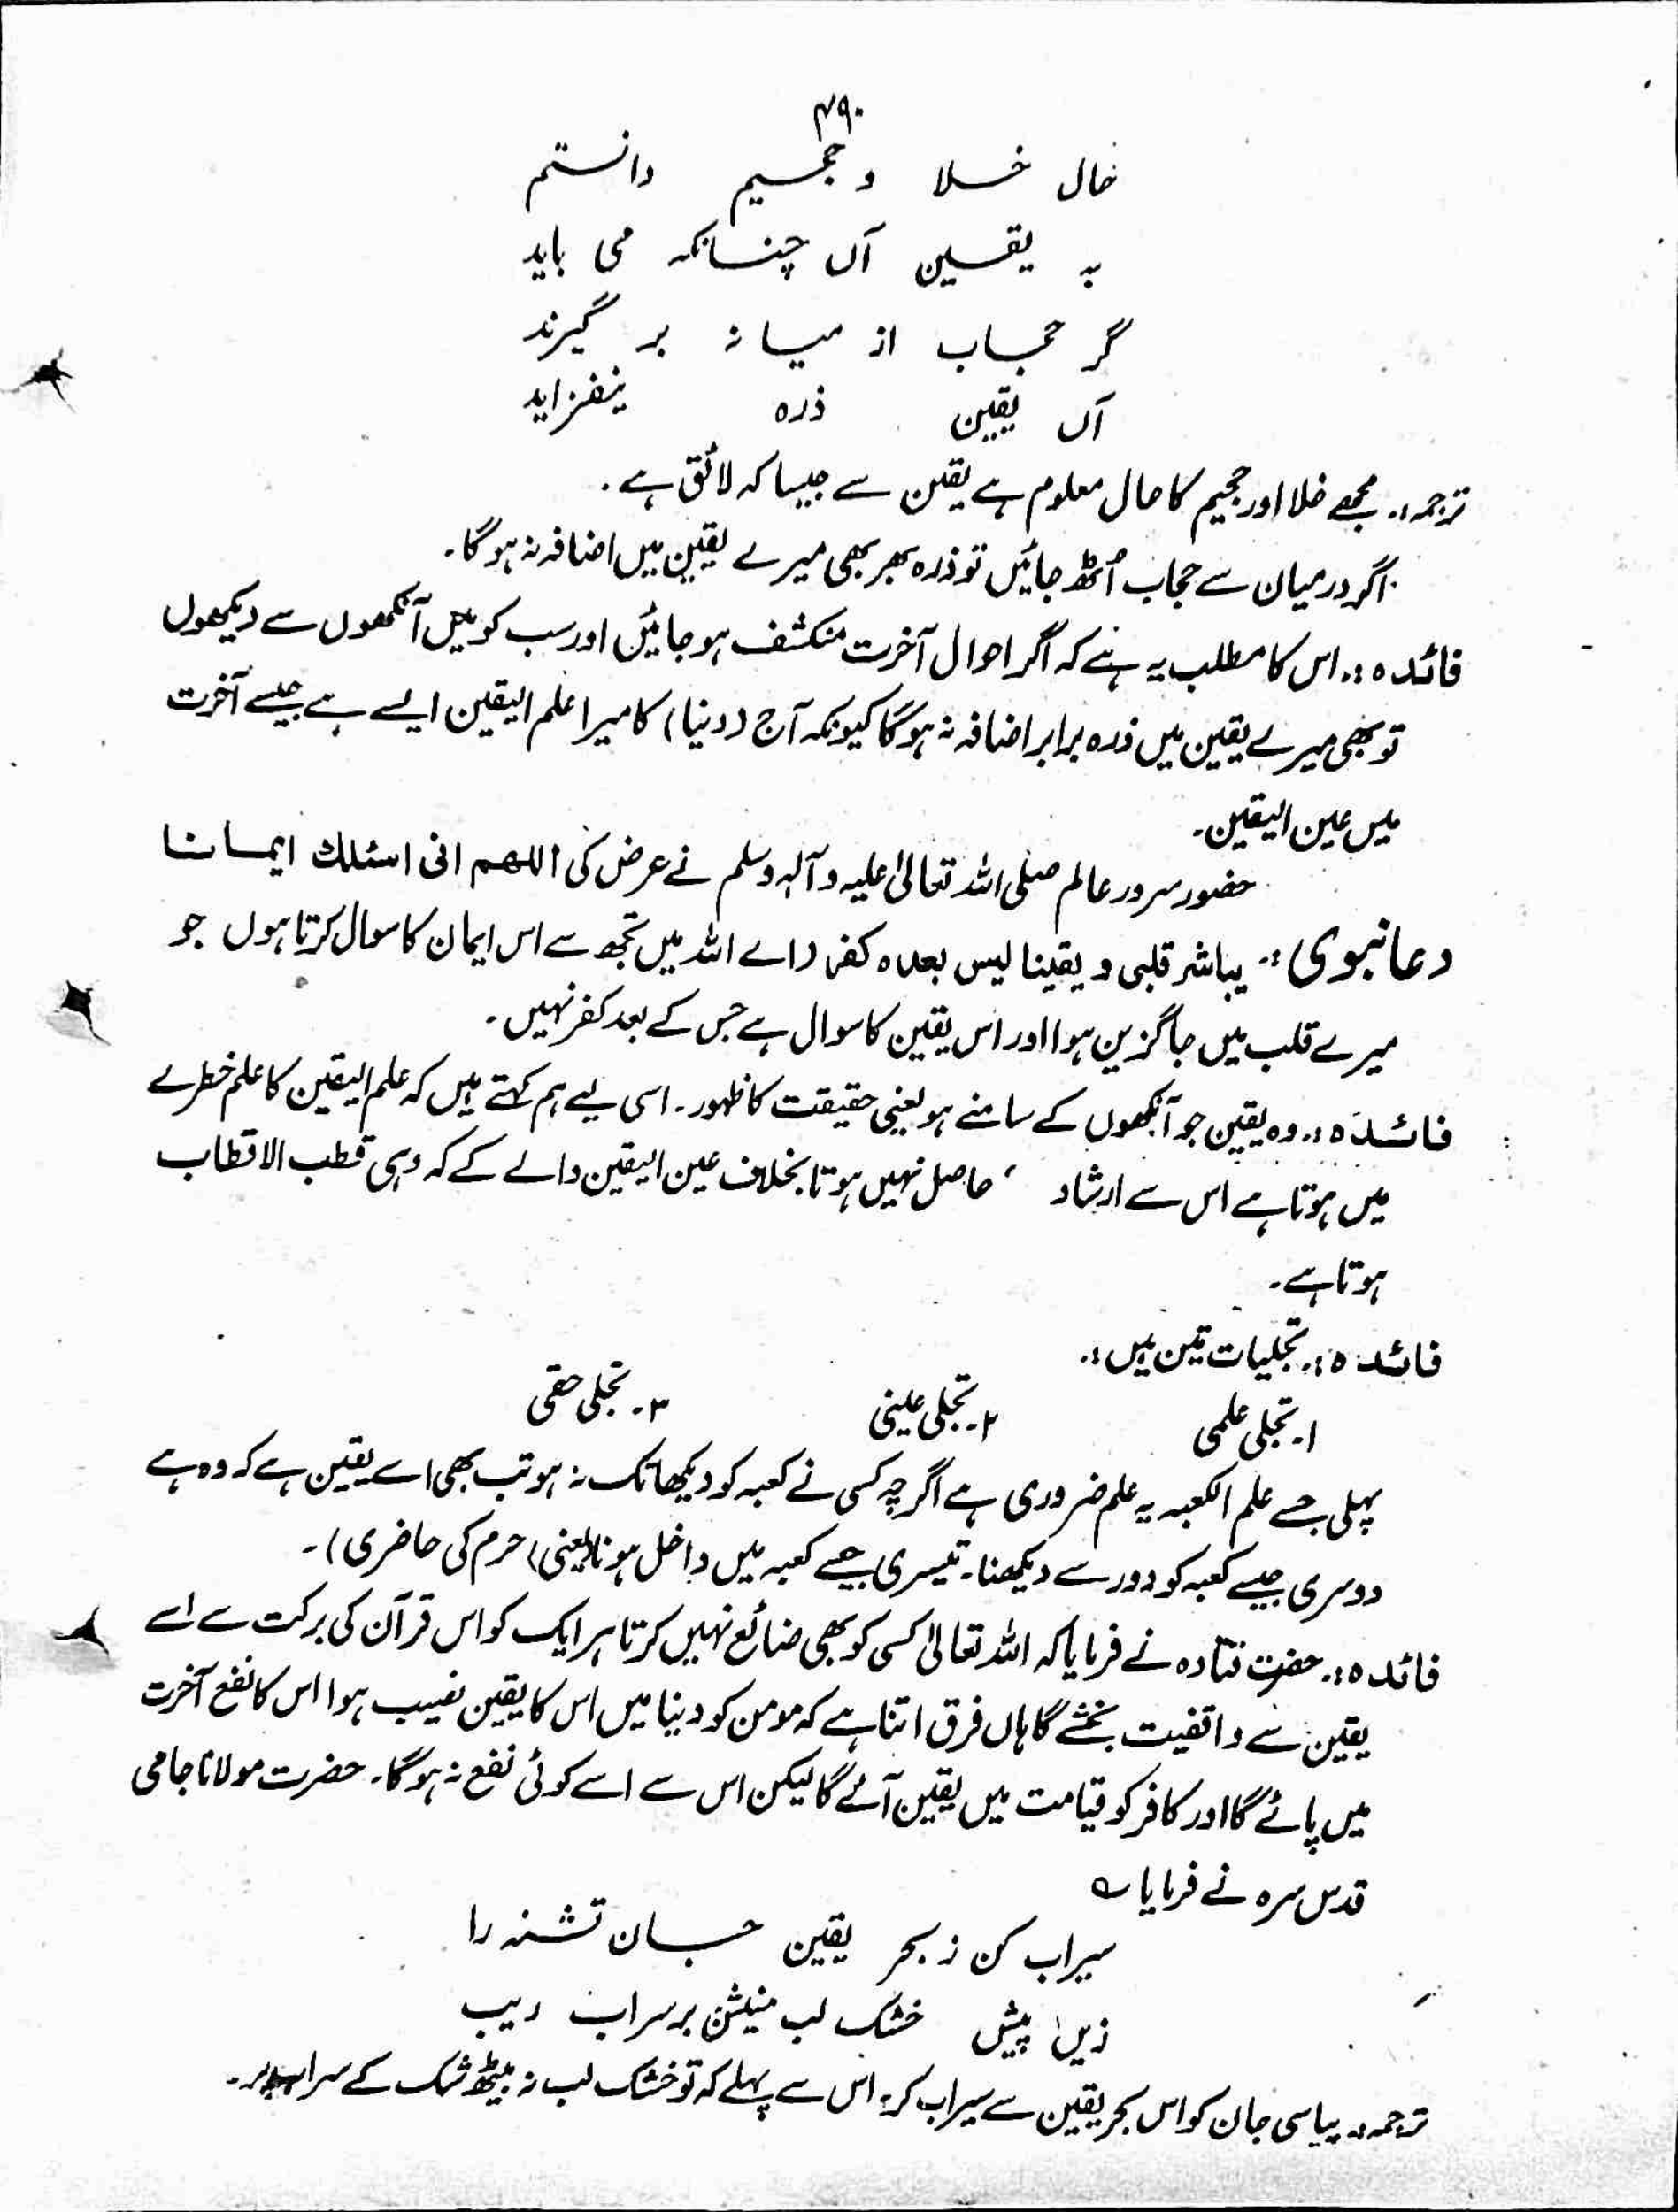 ۴۹۰
حال خلا و جحیم دانستم
بہ یقین آں چنانکہ می باید
گر حجاب از میانہ بر گیرند
آں یقین ذرہ نیفزاید
ترجمہ :۔ مجھے خلا اور جحیم کا حال معلوم ہے یقین سے جیسا کہ لائق ہے ۔
اگر درمیان سے حجاب اُٹھ جائیں تو ذرہ بھر بھی میرے یقین میں اضافہ نہ ہوگا۔
فائدہ :۔ اس کا مطلب یہ ہے کہ اگر احوال آخرت منکشف ہو جائیں اور سب کو میں آنکھوں سے دیکھوں
تو بھی میرے یقین میں ذرہ برابر اضافہ نہ ہوگا کیونکہ آج (دنیا) کا میرا علم الیقین ایسے ہے جیسے آخرت
میں عین الیقین۔
حضور سرور عالم صلی اللہ تعالیٰ علیہ وآلہ وسلم نے عرض کی اللھم انی اسئلك ایمانا
دعا نبوی :۔ یباشر قلبی و یقینا لیس بعدہ کفر (اے اللہ میں تجھ سے اس ایمان کا سوال کرتا ہوں جو
میرے قلب میں جاگزین ہوا اور اس یقین کا سوال ہے جس کے بعد کفر نہیں۔
فائدہ :۔ وہ یقین جو آنکھوں کے سامنے ہو یعنی حقیقت کا ظہور۔ اسی لیے ہم کہتے ہیں کہ علم الیقین کا علم خطرے
میں ہوتا ہے اس سے ارشاد حاصل نہیں ہوتا بخلاف عین الیقین والے کے کہ وہی قطب الاقطاب
ہوتا ہے۔
فائدہ :۔ تجلیات تین ہیں :۔
۱۔ تجلی علمی ۲۔ تجلی عینی ۳۔ تجلی حقی
پہلی جسے علم الکعبہ یہ علم ضروری ہے اگرچہ کسی نے کعبہ کو دیکھا تک نہ ہو تب بھی اسے یقین ہے کہ وہ ہے
دوسری جیسے کعبہ کو دور سے دیکھنا۔ تیسری جیسے کعبہ میں داخل ہونا (یعنی) حرم کی حاضری)۔
فائدہ :۔ حضرت قتادہ نے فرمایا کہ اللہ تعالیٰ کسی کو بھی ضائع نہیں کرتا ہر ایک کو اس قرآن کی برکت سے اسے
یقین سے واقفیت بخشے گا ہاں فرق اتنا ہے کہ مومن کو دنیا میں اس کا یقین نصیب ہوا اس کا نفع آخرت
میں پائے گا اور کافر کو قیامت میں یقین آئے گا لیکن اس سے اسے کوئی نفع نہ ہوگا۔ حضرت مولانا جامی
قدس سرہ نے فرمایا ؎
سیراب کن ز بحر یقین جان تشنہ را
زیں پیش خشک لب منیشن بر سراب ریب
ترجمہ :۔ پیاسی جان کو اس بحر یقین سے سیراب کر، اس سے پہلے کہ تو خشک لب نہ بیٹھ شک کے سراب پر۔